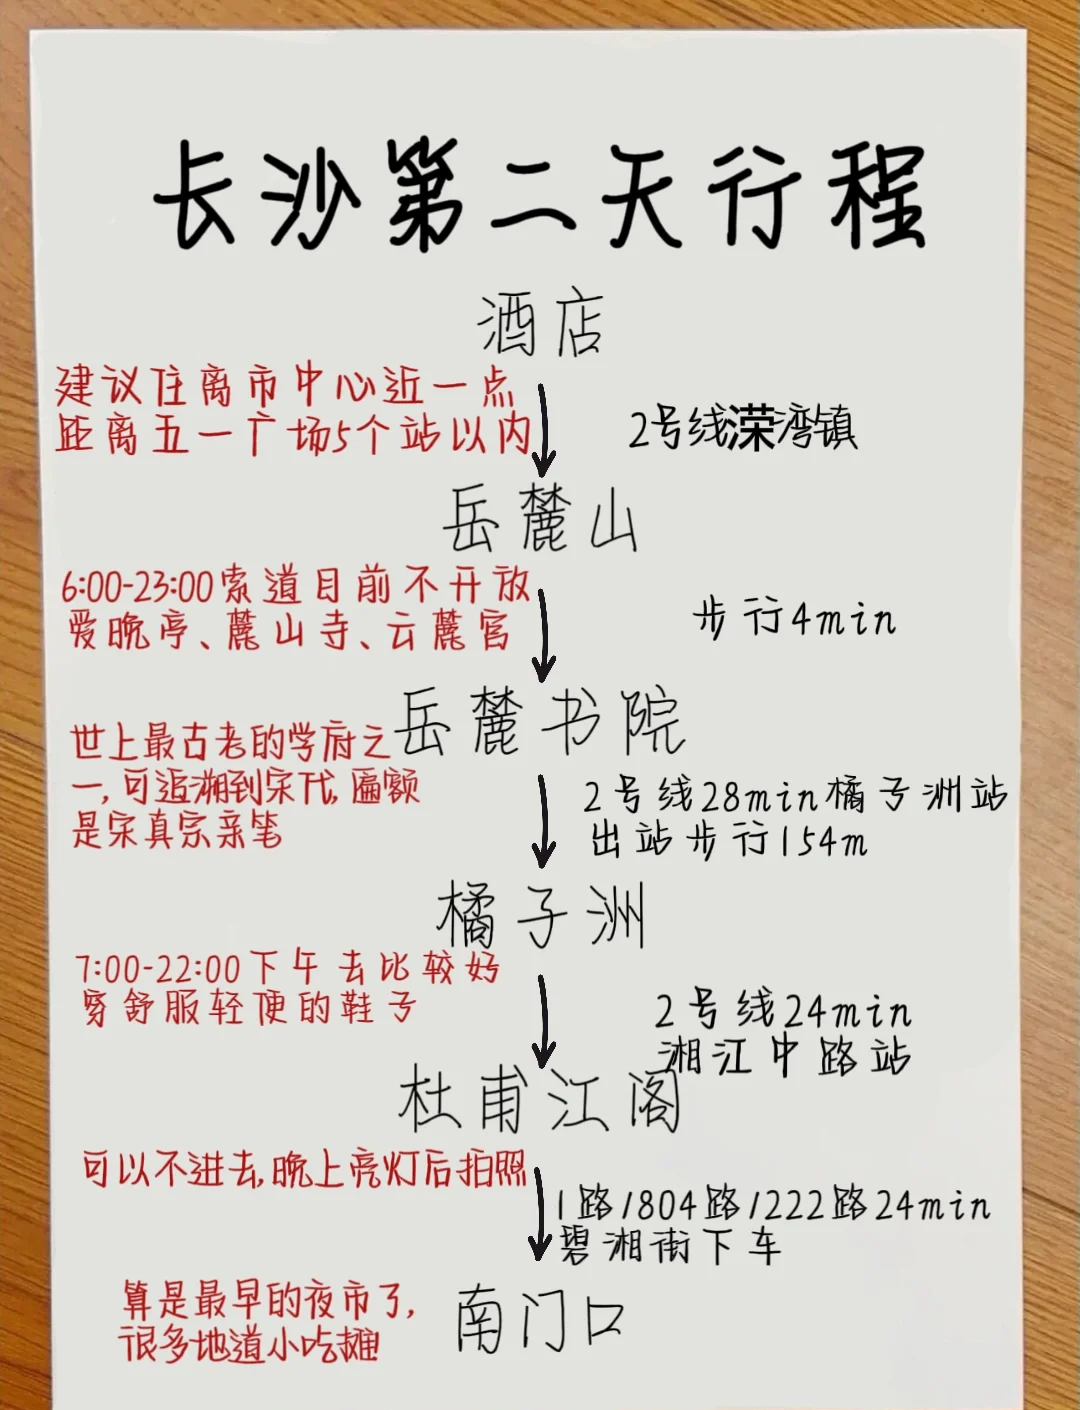 长沙第二天行程
酒店
建议住离市中心近一点
距离五一广场5个站以内
2号线溁湾镇
岳麓山
6:00-23:00索道目前不开放
爱晚亭、麓山寺、云麓宫
步行4min
岳麓书院
世上最古老的学府之
一,可追溯到宋代,匾额
是宋真宗亲笔
2号线28min橘子洲站
出站步行154m
橘子洲
7:00-22:00下午去比较好
穿舒服轻便的鞋子
2号线24min
湘江中路站
杜甫江阁
可以不进去,晚上亮灯后拍照
1路/804路/222路24min
碧湘街下车
南门口
算是最早的夜市了,
很多地道小吃摊